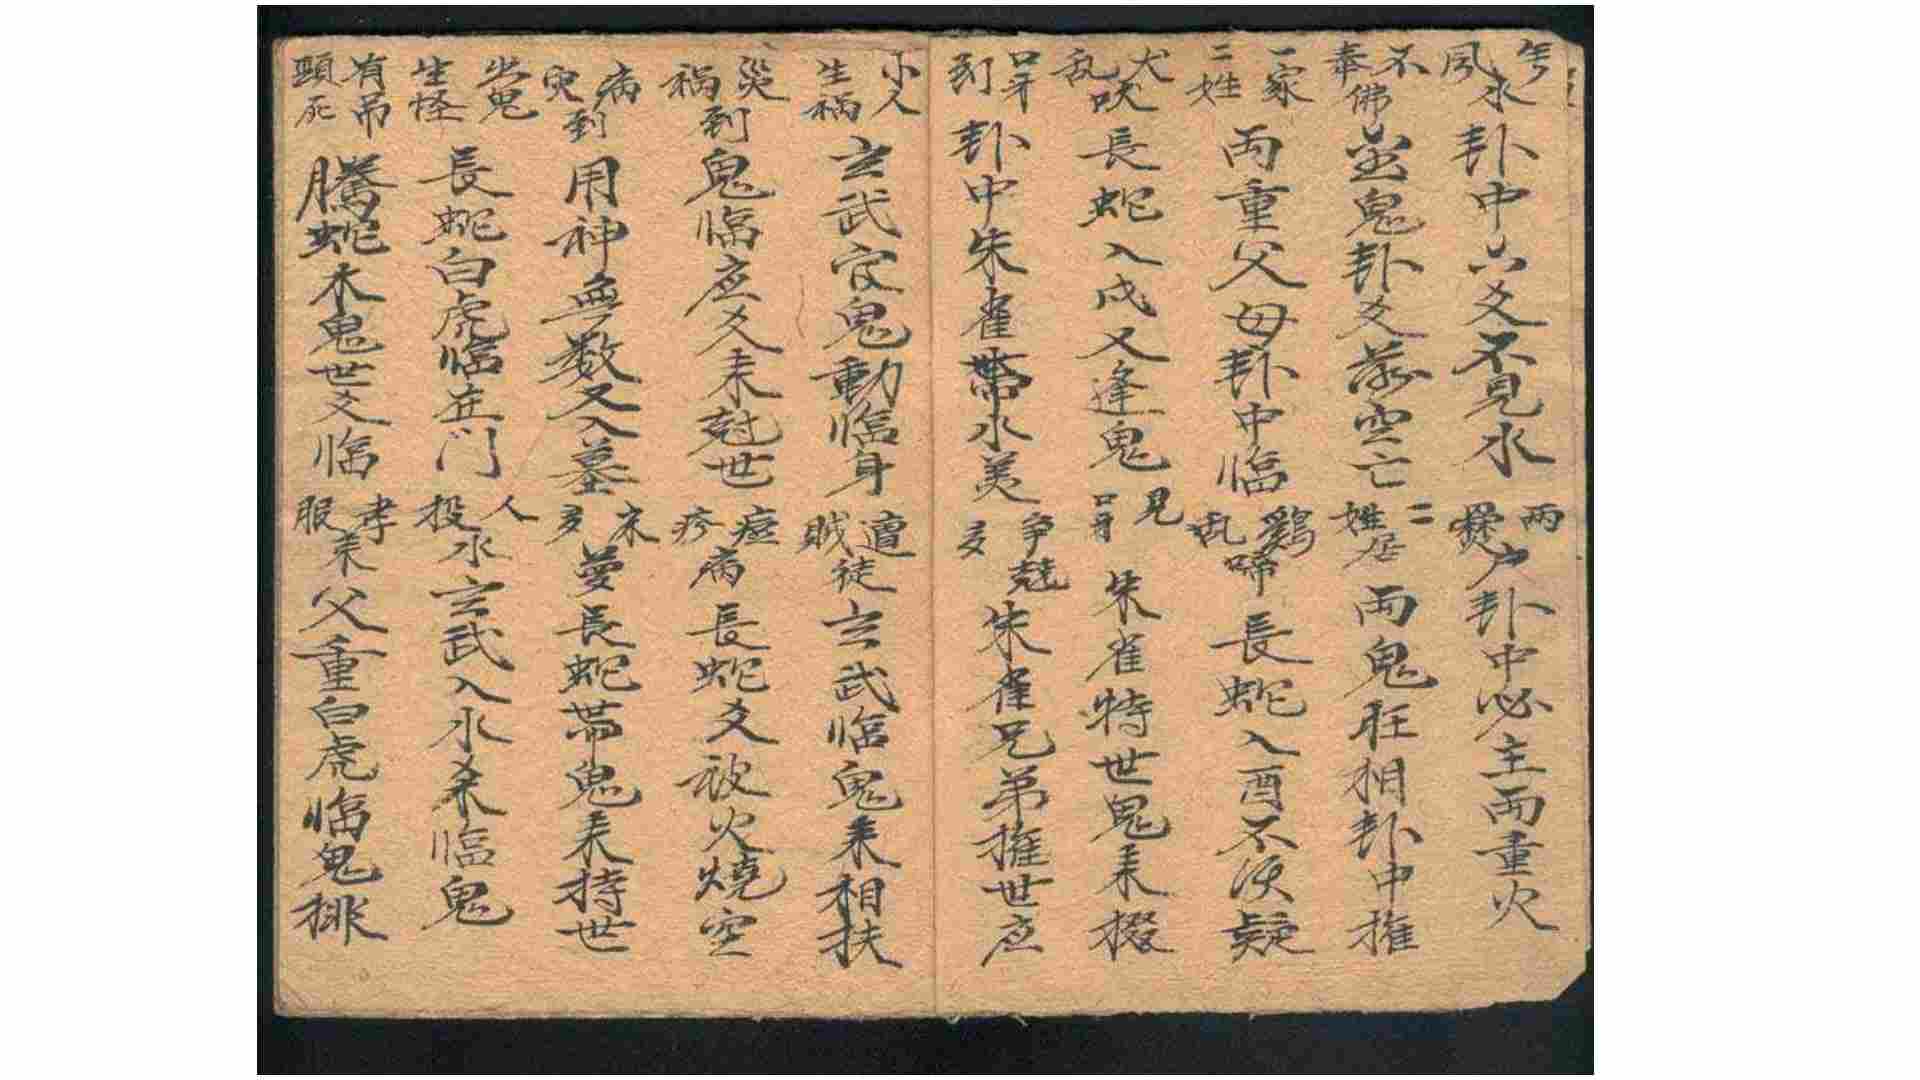 风水卦中六爻不見水 兩爨户卦中必主兩重火
不奉佛金鬼卦爻落空亡 二姓居兩鬼旺相卦中推
一家二姓兩重父母卦中临 鷄乱啼長蛇入酉不须疑
犬乱吠長蛇入戌又逢鬼 見口舌朱雀持世鬼来掇
口舌到卦中朱雀帶水美 争兢多朱雀兄弟推世应
小人生祸玄武官鬼動临身 遭賊徒玄武临鬼来相扶
災祸到鬼临应爻来尅世 痘疹病長蛇爻被火燒空
病兒到用神無数又入墓 床多夢長蛇带鬼来持世
出鬼生怪長蛇白虎临在门 人投水玄武入水杀临鬼
有吊頸死騰蛇木鬼世爻临 孝服来父重白虎临鬼排